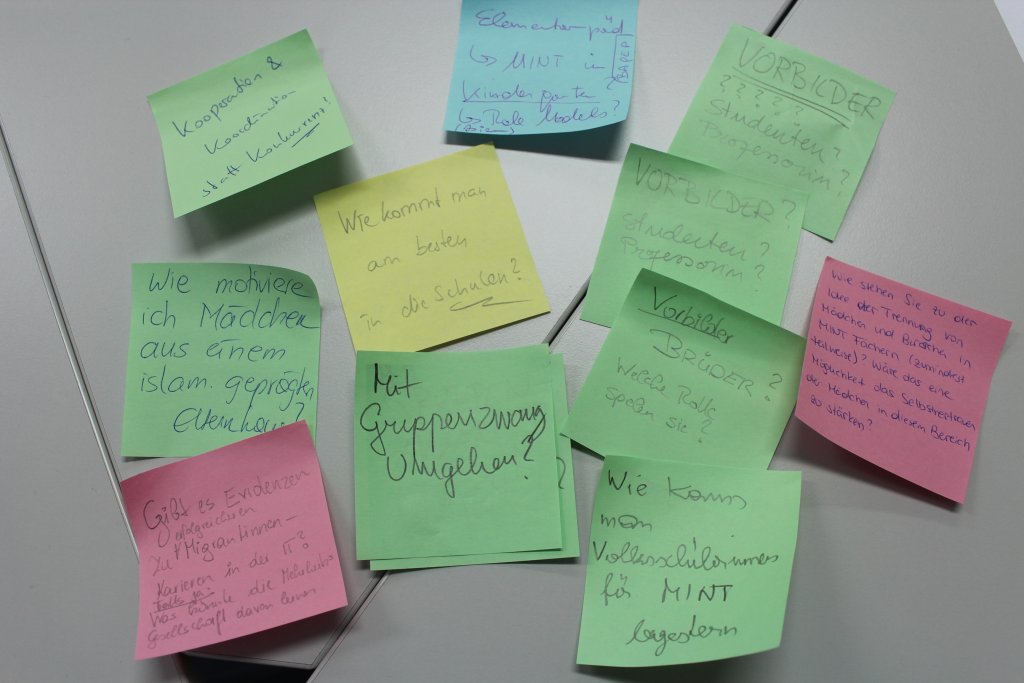 Kooperation &
Koordination
statt Konkurrenz?
Elementarpäd
↳ MINT in
Kindergarten?
↳ Role Models?
BAfEP
VORBILDER
? ? ? ? ?
Studenten?
Professorin?
Wie kommt man
am besten
in die Schulen?
VORBILDER?
Studenten?
Professorin?
Wie motiviere
ich Mädchen
aus einem
islam. geprägten
Elternhaus?
Vorbilder
BRÜDER?
Welche Rolle
spielen sie?
Wie stehen Sie zu der
Idee der Trennung von
Mädchen und Burschen in
MINT Fächern (zumindest
teilweise)? Wäre das eine
Möglichkeit das Selbstvertrauen
der Mädchen in diesem Bereich
zu stärken?
Mit
Gruppenzwang
Umgehen?
?
Gibt es Evidenzen
erfolgreichen
zu Migrantinnen-
Karrieren in der IT?
Falls ja:
Was könnte die Mehrheits
Gesellschaft davon lernen.
Wie kann
man
Volksschülerinnen
für MINT
begeistern